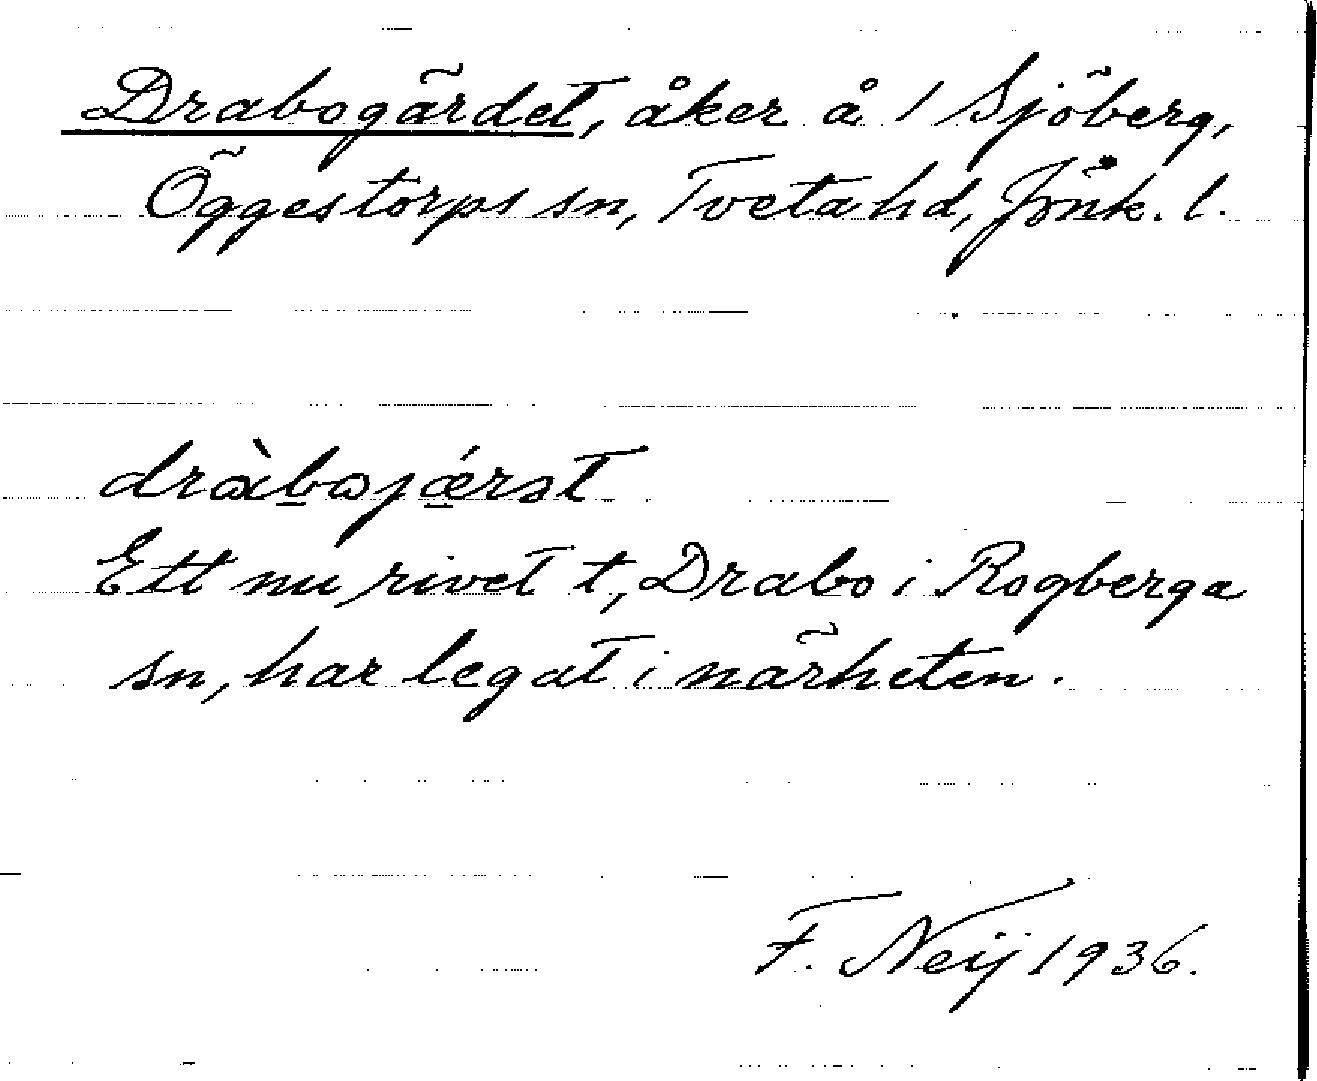 Drabogärdet, åker å 1 Sjöberg,
Öggestorps sn, Tveta hd, Jönk. l.
dràbojǽrət
Ett nu rivet t, Drabo i Rogberga
sn, har legat i närheten.
F. Neij 1936.